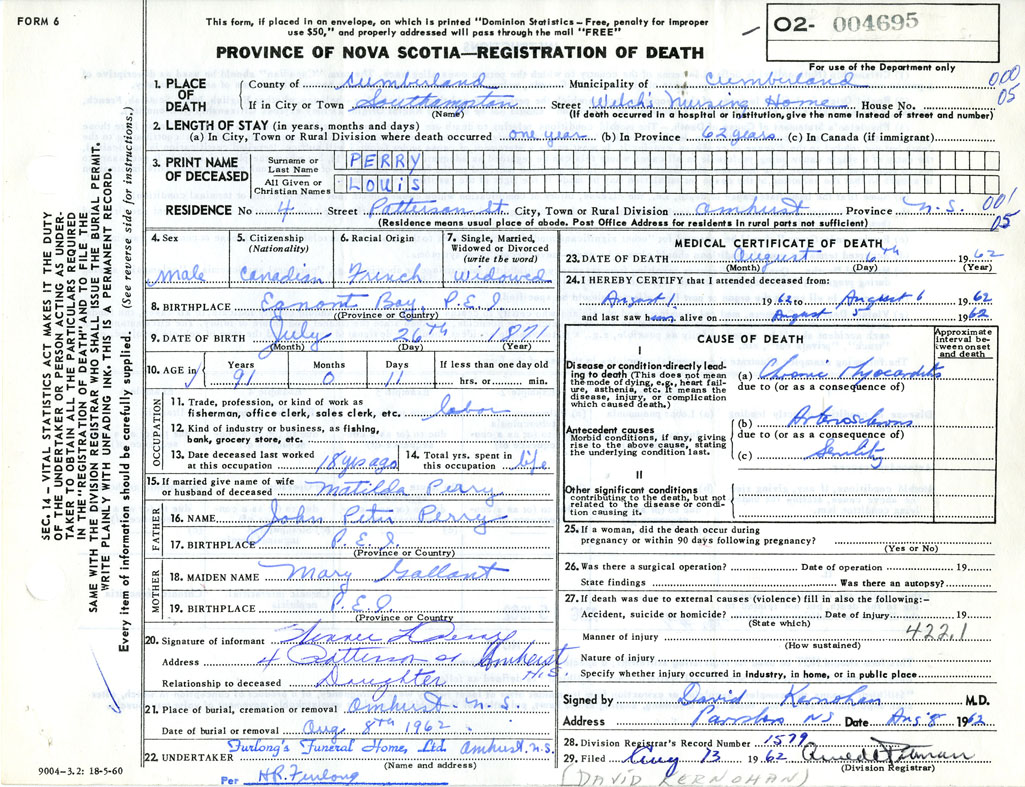 FORM 6
This form, if placed in an envelope, on which is printed "Dominion Statistics – Free, penalty for improper
use $50," and properly addressed will pass through the mail "FREE"
O2- 004695
For use of the Department only
PROVINCE OF NOVA SCOTIA—REGISTRATION OF DEATH
SEC. 14 – VITAL STATISTICS ACT MAKES IT THE DUTY
OF THE UNDERTAKER OR PERSON ACTING AS UNDER-
TAKER TO OBTAIN ALL THE PARTICULARS REQUIRED
IN THE "REGISTRATION OF DEATH" AND TO FILE THE
SAME WITH THE DIVISION REGISTRAR WHO SHALL ISSUE THE BURIAL PERMIT.
WRITE PLAINLY WITH UNFADING INK. THIS IS A PERMANENT RECORD.
Every item of information should be carefully supplied. (See reverse side for instructions.)
1. PLACE OF DEATH
County of Cumberland Municipality of Cumberland 000
If in City or Town Southampton Street Welsh's Nursing Home House No. 05
(Name) (If death occurred in a hospital or institution, give the name instead of street and number)
2. LENGTH OF STAY (in years, months and days)
(a) In City, Town or Rural Division where death occurred one year (b) In Province 62 years (c) In Canada (if immigrant)
3. PRINT NAME OF DECEASED
Surname or Last Name PERRY
All Given or Christian Names LOUIS
RESIDENCE No 4 Street Patterson St. City, Town or Rural Division Amherst Province N.S. 001
(Residence means usual place of abode. Post Office Address for residents in rural parts not sufficient) 05
4. Sex 5. Citizenship (Nationality) 6. Racial Origin 7. Single, Married, Widowed or Divorced (write the word)
Male Canadian French Widowed
8. BIRTHPLACE Egmont Bay, P.E.I.
(Province or Country)
9. DATE OF BIRTH July 26th 1871
(Month) (Day) (Year)
10. AGE in Years Months Days If less than one day old
91 0 11 hrs. or min.
OCCUPATION
11. Trade, profession, or kind of work as
fisherman, office clerk, sales clerk, etc. labor
12. Kind of industry or business, as fishing,
bank, grocery store, etc.
13. Date deceased last worked
at this occupation 18 yrs ago
14. Total yrs. spent in
this occupation life
15. If married give name of wife
or husband of deceased Matilda Perry
FATHER
16. NAME John Peter Perry
17. BIRTHPLACE P.E.I.
(Province or Country)
MOTHER
18. MAIDEN NAME Mary Gallant
19. BIRTHPLACE P.E.I.
(Province or Country
20. Signature of informant Perry
Address 4 Patterson St Amherst N.S.
Relationship to deceased Daughter
21. Place of burial, cremation or removal Amherst N.S.
Date of burial or removal Aug 8th 1962
22. UNDERTAKER Furlong's Funeral Home, Ltd. Amherst, N.S.
(Name and address)
9004–3.2: 18-5-60
Per H.R. Furlong
MEDICAL CERTIFICATE OF DEATH
23. DATE OF DEATH August 6th 1962
(Month) (Day) (Year)
24. I HEREBY CERTIFY that I attended deceased from:
August 1 1962 to August 6 1962
and last saw him alive on August 5th 1962
CAUSE OF DEATH
Approximate interval between onset and death
I
Disease or condition directly lead-
ing to death (This does not mean
the mode of dying, e.g., heart fail-
ure, asthenia, etc. It means the
disease, injury, or complication
which caused death.)
(a) Chronic Myocarditis
due to (or as a consequence of)
Antecedent causes
Morbid conditions, if any, giving
rise to the above cause, stating
the underlying condition last.
(b) Arteriosclerosis
due to (or as a consequence of)
(c) Senility
II
Other significant conditions
contributing to the death, but not
related to the disease or condi-
tion causing it.
25. If a woman, did the death occur during
pregnancy or within 90 days following pregnancy?
(Yes or No)
26. Was there a surgical operation? Date of operation 19
State findings Was there an autopsy?
27. If death was due to external causes (violence) fill in also the following:–
Accident, suicide or homicide? Date of injury 19
(State which)
422.1
Manner of injury
(How sustained)
Nature of injury
Specify whether injury occurred in industry, in home, or in public place
Signed by David Kernohan M.D.
Address Parrsboro NS Date Aug 8 1962
28. Division Registrar's Record Number 1579
29. Filed Aug 13 1962
(Division Registrar)
(DAVID KERNOHAN)